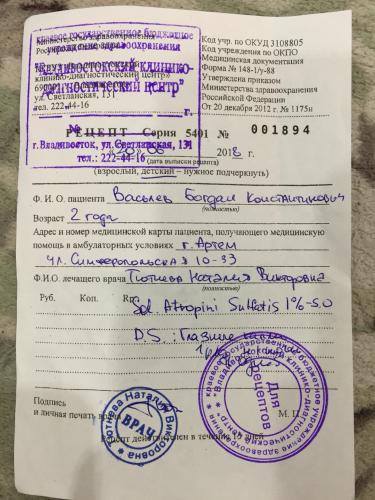 краевое государственное бюджетное
учреждение здравоохранения
"Владивостокский клинико-
диагностический центр"
г. Владивосток, ул. Светланская, 131
тел.: 222-44-16
Министерство здравоохранения
Российской
диагностический центр»
ул. Светланская, 131
тел. 222-44-16
Код учр. по ОКУД 3108805
Код учреждения по ОКПО
Медицинская документация
Форма № 148-1/у-88
Утверждена приказом
Министерства здравоохранения
Российской Федерации
От 20 декабря 2012 г. № 1175н
РЕЦЕПТ Серия 5401 № 001894
«20» 06 2018 г.
(дата выписки рецепта)
(взрослый, детский – нужное подчеркнуть)
Ф. И. О. пациента Васьев Богдан Константинович
(полностью)
Возраст 2 года
Адрес и номер медицинской карты пациента, получающего медицинскую
помощь в амбулаторных условиях г. Артем
ул. Симферопольская 10-33
Ф.И.О. лечащего врача Наталия Викторовна
(полностью)
Руб. Коп. Rp.
Sol. Atropini Sulfatis 1% - 5.0
D.S.: Глазные
Подпись
и личная печать врача
М. П.
Рецепт действителен в течение 15 дней
Наталия Викторовна
ВРАЧ
краевое государственное бюджетное учреждение здравоохранения
клинико-диагностический центр"
Для
рецептов